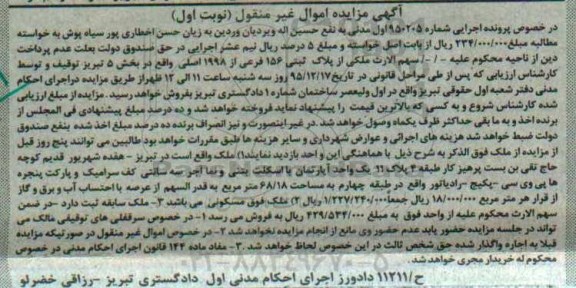 آگهی مزایده اموال غیر منقول (نوبت اول)
در خصوص پرونده اجرایی شماره ۹۵۰۲۰۵اول مدنی به نفع حسین اله ویردیان وردین به زیان حسن اخطاری پور سیاه پوش به خواسته
مطالبه مبلغ ۲۳۴/۰۰۰/۰۰۰ ریال از بابت اصل خواسته و مبلغ ۵ درصد ریال نیم عشر اجرایی در حق صندوق دولت بعلت عدم پرداخت
دین از ناحیه محکوم علیه - /- /سهم الارث ملکی از پلاک ثبتی ۱۵۶ فرعی از ۱۹۹۸ اصلی واقع در بخش ۵ تبریز توقیف و توسط
کارشناس ارزیابی که پس از طی مراحل قانونی در تاریخ ۹۵/۱۲/۱۷ روز سه شنبه ساعت ۱۱ الی ۱۲ ظهر از طریق مزایده دراجرای احکام
مدنی دفتر شعبه اول حقوقی تبریز واقع در اول ولیعصر ساختمان شماره ۱ دادگستری تبریز بفروش خواهد رسید. مزایده از مبلغ ارزیابی
شده کارشناس شروع و به کسی که بالاترین قیمت را پیشنهاد نماید فروخته خواهد شد و ده درصد مبلغ پیشنهادی فی المجلس از
برنده اخذ و به ما بقی حداکثر ظرف یکماه وصول خواهد شد. در غیر اینصورت و نیز انصراف برنده ده درصد مبلغ اخذ شده بنفع صندوق
دولت ضبط خواهد شد هزینه های اجرائی و عوارض شهرداری و سایر هزینه ها طبق مقررات خواهد بود طالبین می توانند پنج روز قبل
از مزایده از ملک فوق الذکر به شرح ذیل با هماهنگی این واحد بازدید نمایند۱) ملک واقع است در تبریز - هفده شهریور قدیم کوچه
حاج تقی بن بست پرهیز کار طبقه ۴ پلاک ۱۱ یک واحد آپارتمان با اسکلت بتنی و نما آجر سه سانتی کف سرامیک و پارکت پنجره
ها پی وی سی -پکیج -رادیاتور واقع در طبقه چهارم به مساحت ۶۸/۱۸ متر مربع به قدر السهم از عرصه با احتساب آب و برق و گاز
از قرار هر متر مربع ۱۸/۰۰۰/۰۰۰ ریال جمعاً۱/۲۲۷/۲۴۰/۰۰۰ ریال ۲) ملک فوق مسکونی می باشد ۳- ملک سابقه ثبت دارد -در ضمن
سهم الارث محکوم علیه از واحد فوق به مبلغ ۴۲۹/۵۳۴/۰۰۰ ریال به فروش می رسد ۱- در خصوص سرقفلی های توقیفی مالک می
تواند در جلسه مزایده حضور یابد عدم حضور وی مانع از انجام مزایده نخواهد شد ۲- در خصوص اموال غیر منقول در صورتیکه مزایده
قبلا به اجاره واگذار شده حق شخص ثالث در این خصوص لحاظ خواهد شد. ۳- مفاد ماده ۱۴۴ قانون اجرای احکام مدنی در خصوص
محکوم له خریدار مجری خواهد شد.
ح/۱۱۳۱۱ دادورز اجرای احکام مدنی اول دادگستری تبریز -رزاقی خضرلو